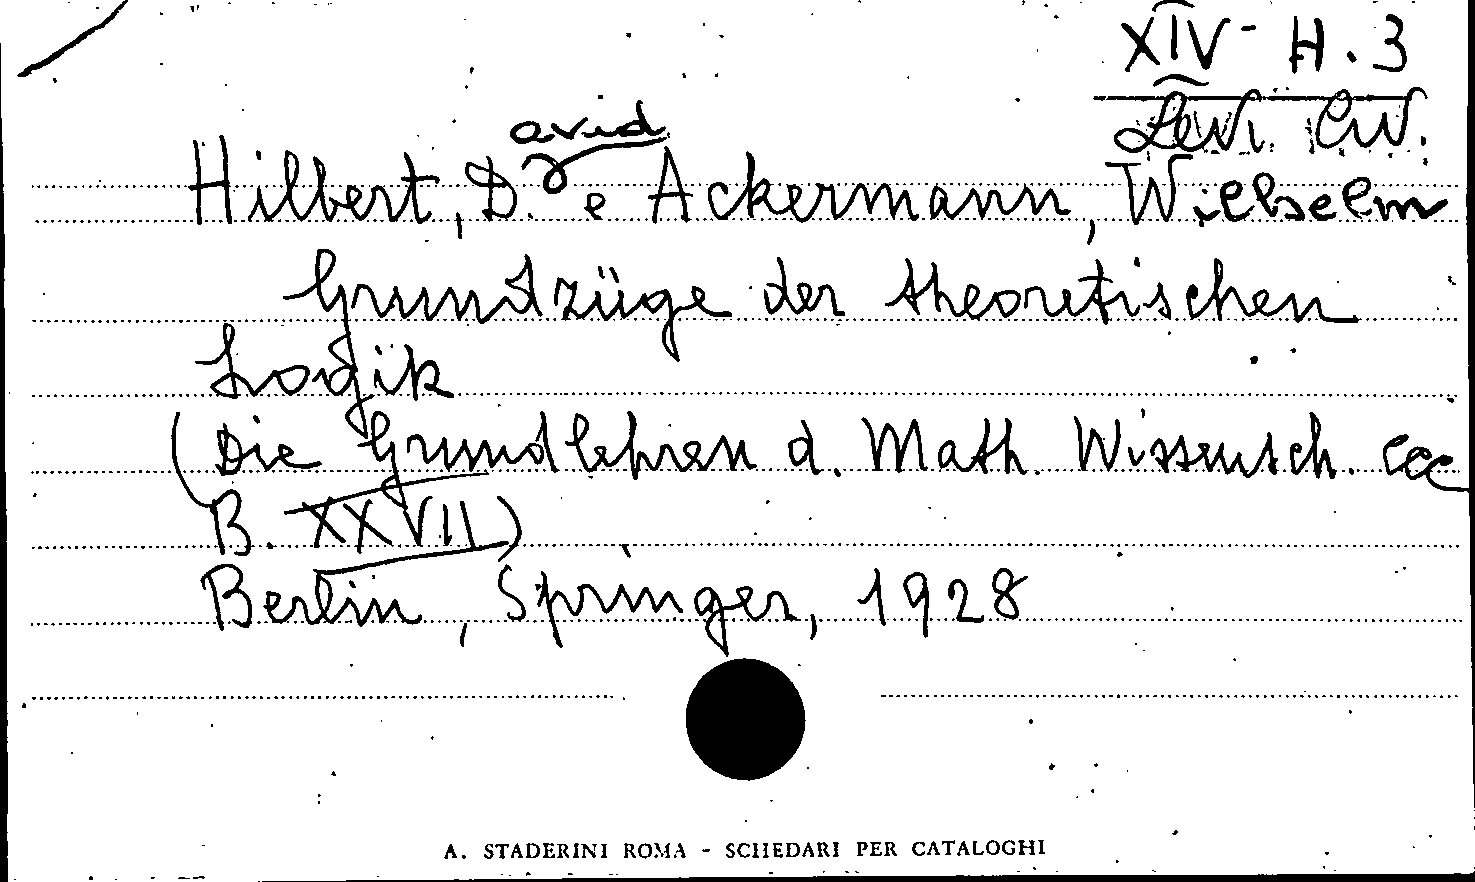 XIV - H. 3
Levi Civ.
avid
Hilbert, D. e Ackermann, Wilhelm
Grundzüge der theoretischen
Logik
(Die Grundlehren d. Math. Wissensch. ecc
B. XXVII)
Berlin, Springer, 1928
A. STADERINI ROMA - SCHEDARI PER CATALOGHI